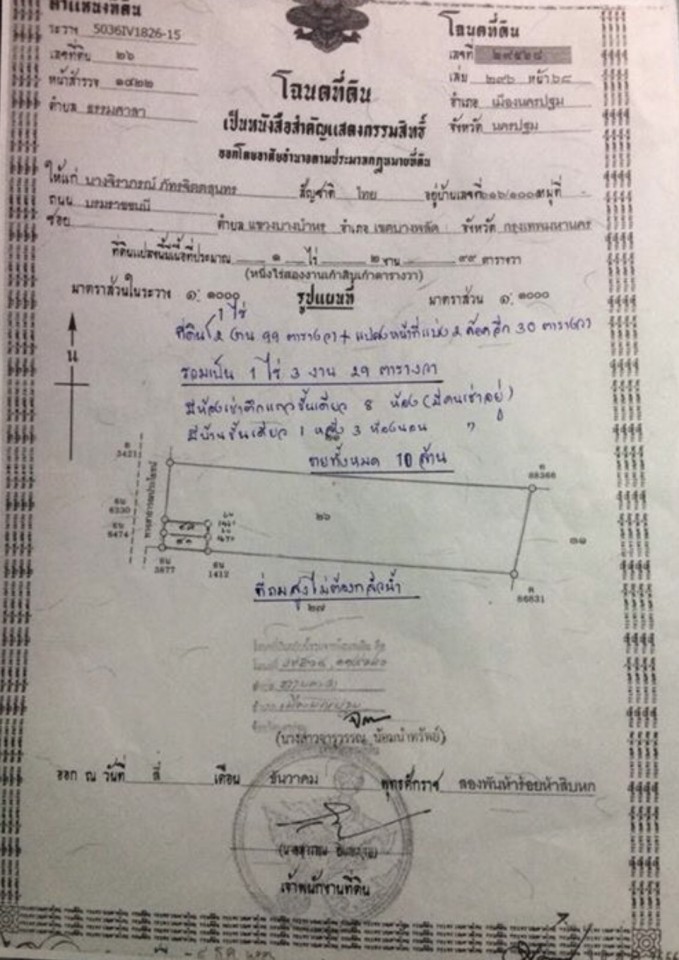 ตำแหน่งที่ดิน
ระวาง 5036IV1826-15
เลขที่ดิน ๒๖
หน้าสำรวจ ๑๔๒๒
ตำบล ธรรมศาลา
โฉนดที่ดิน
เลขที่
เล่ม ๒๙๖ หน้า ๖๘
อำเภอ เมืองนครปฐม
จังหวัด นครปฐม
โฉนดที่ดิน
เป็นหนังสือสำคัญแสดงกรรมสิทธิ์
ออกโดยอาศัยอำนาจตามประมวลกฎหมายที่ดิน
ให้แก่ นางจิราภรณ์ ภัทรจิตตสุนทร สัญชาติ ไทย อยู่บ้านเลขที่ ๒๑๖/๑๐๐ หมู่ที่ -
ถนน บรมราชชนนี
ซอย ตำบล แขวงบางบำหรุ อำเภอ เขตบางพลัด จังหวัด กรุงเทพมหานคร
ที่ดินแปลงนี้มีเนื้อที่ประมาณ ๑ ไร่ ๒ งาน ๙๙ ตารางวา
(หนึ่งไร่สองงานเก้าสิบเก้าตารางวา)
มาตราส่วนในระวาง ๑: ๑๐๐๐ รูปแผนที่ มาตราส่วน ๑: ๑๐๐๐
1 ไร่
ที่ดิน 2 งาน 99 ตารางวา + แปลงหน้าที่แบ่ง 2 ล็อคอีก 30 ตารางวา
รวมเป็น 1 ไร่ 3 งาน 29 ตารางวา
มีห้องเช่าตึกแถวชั้นเดียว 8 ห้อง (มีคนเช่าอยู่)
มีบ้านชั้นเดียว 1 หลัง 3 ห้องนอน "
ขายทั้งหมด 10 ล้าน
น
ด
3421
ด
88366
ทางสาธารณประโยชน์
ธน
6330
ธน
6474
ธน
3877
ธน
1412
๒๖
๓๑
ด
86831
ที่ถมสูงไม่ต้องกลัวน้ำ
๒๗
(นางสาวจารุวรรณ น้อมนำทรัพย์)
ออก ณ วันที่ สี่ เดือน ธันวาคม พุทธศักราช สองพันห้าร้อยห้าสิบหก
เจ้าพนักงานที่ดิน